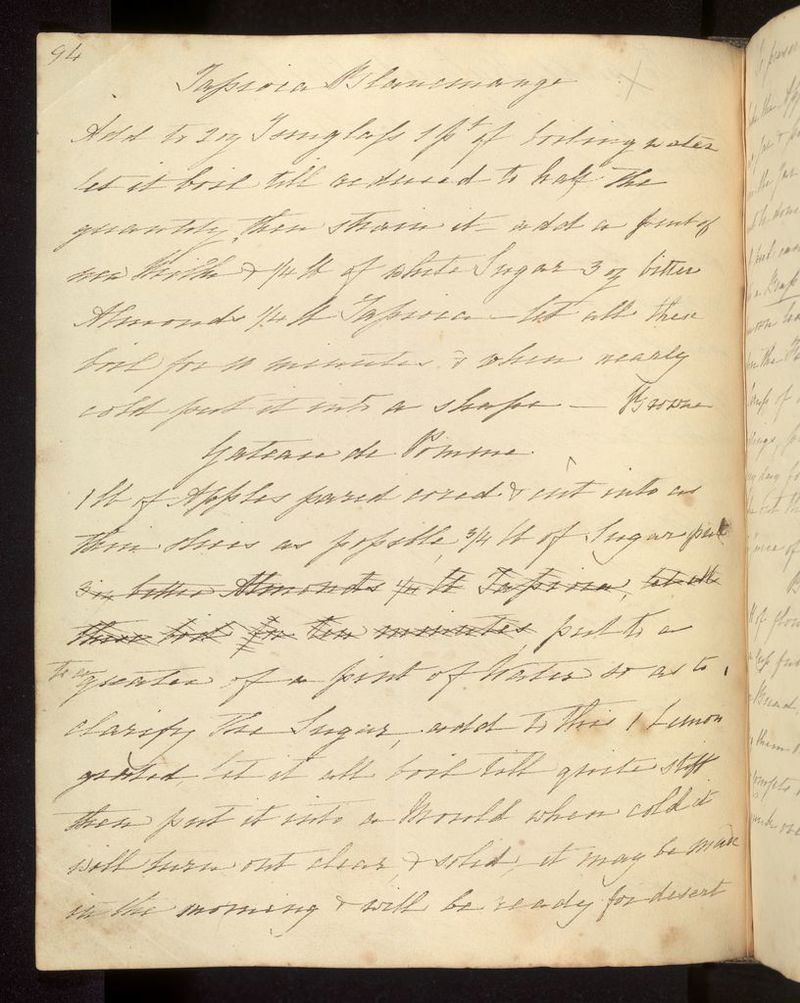 94
Tapioca Blancmange X
Add to 2 oz Isinglass 1 pt of boiling water
let it boil till reduced to half the
quantity, then strain it – add a pint of
new Milk & 1/4 lb of white Sugar 3 oz bitter
Almonds 1/4 lb Tapioca – let all these
boil for 10 minutes & when nearly
cold put it into a shape – Browne
Gateau de Pomme
1 lb of Apples pared cored & cut into as
thin slices as possble, 3/4 lb of Sugar put
3 oz bitter Almonds 1/4 lb Tapioca, let all
these boil for ten minutes put to a
to a
quarter of a pint of Water so as to
clarify the Sugar, add to this 1 Lemon
grated, let it all boil till quite stiff
then put it into a Mould when cold it
will turn out clear, & solid, it may be made
in the morning & will be ready for desert